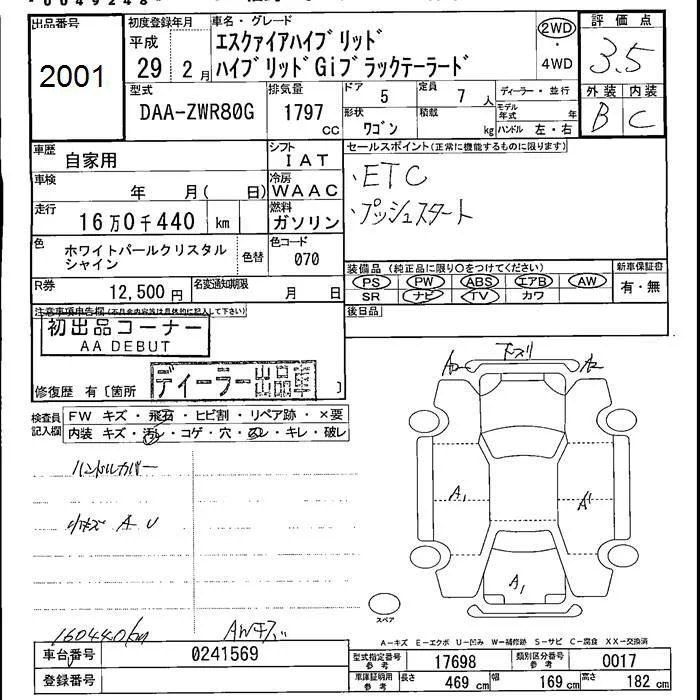 出品番号
2001
初度登録年月
平成
29 2月
車名・グレード
エスクァイアハイブリッド
ハイブリッドGiブラックテーラード
2WD
・
4WD
評価点
3.5
外装 内装
B C
型式
DAA-ZWR80G
排気量
1797
cc
ドア 5
定員 7人
形状
ワゴン
積載
kg
ディーラー・並行
モデル年式 年
ハンドル 左・右
車歴
自家用
シフト
IAT
車検
年 月( 日)
冷房
WAAC
走行
16万0千440 km
燃料
ガソリン
色
ホワイトパールクリスタル
シャイン
色替
色コード
070
R券
12,500円
名変通知期限
月 日
セールスポイント(正常に機能するものに限ります)
・ETC
・プッシュスタート
装備品 (純正品に限り○をつけてください)
PS PW ABS エアB AW
SR ナビ TV カワ
新車保証書
有・無
後日品
注意事項申告欄
初出品コーナー
AA DEBUT
修復歴 有〔箇所
ディーラー出品車
〕
検査員
記入欄
FW キズ・飛石・ヒビ割・リペア跡・×要
内装 キズ・汚レ・コゲ・穴・スレ・キレ・破レ
ハンドルカバー
小キズ A U
160440km
AWキズ
下スリ
A2
A2
A1
A1
A1
スペア
A-キズ E-エクボ U-凹み W-補修跡 S-サビ C-腐食 XX-交換済
車台番号
0241569
登録番号
型式指定番号
参考
17698
類別区分番号
参考
0017
車庫証明用
参考
長さ 469cm
幅 169cm
高さ 182cm